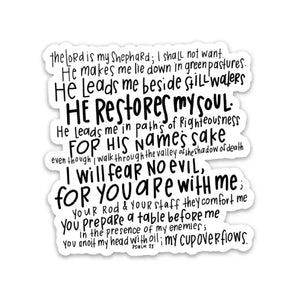 the LORD is my Shephard; I shall not want.
He makes me lie down in green pastures.
He leads me beside still waters
HE RESTORES my SOUL.
He leads me in paths of Righteousness
FOR HIS NAMES SAKE
even though I walk through the valley of the shadow of death
I will fear no evil,
for you are with me;
your rod & your staff they comfort me
you prepare a table before me
in the presence of my enemies;
you anoit my head with oil; my cup overflows.
PSALM 23